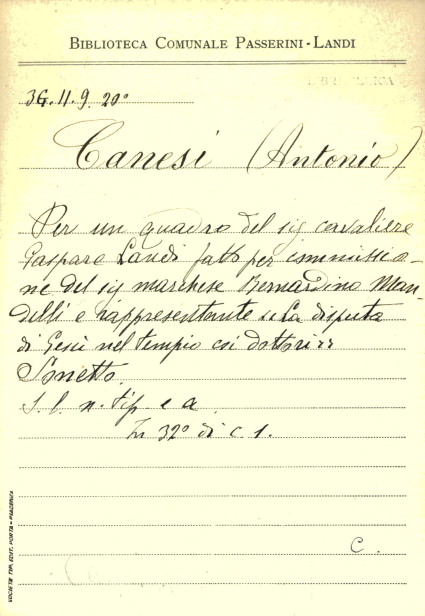 BIBLIOTECA COMUNALE PASSERINI-LANDI
3G.11.9.20°
Canesi (Antonio)
Per un quadro del sig cavaliere
Gaspare Landi fatto per commissio-
ne del sig marchese Bernardino Man-
delli e rappresentante la disputa
di Gesù nel tempio coi dottori
Sonetto.
S. l. n. tip. e a.
In 32° di c. 1.
C.
SOCIETÀ TIP. EDIT. PORTA - PIACENZA